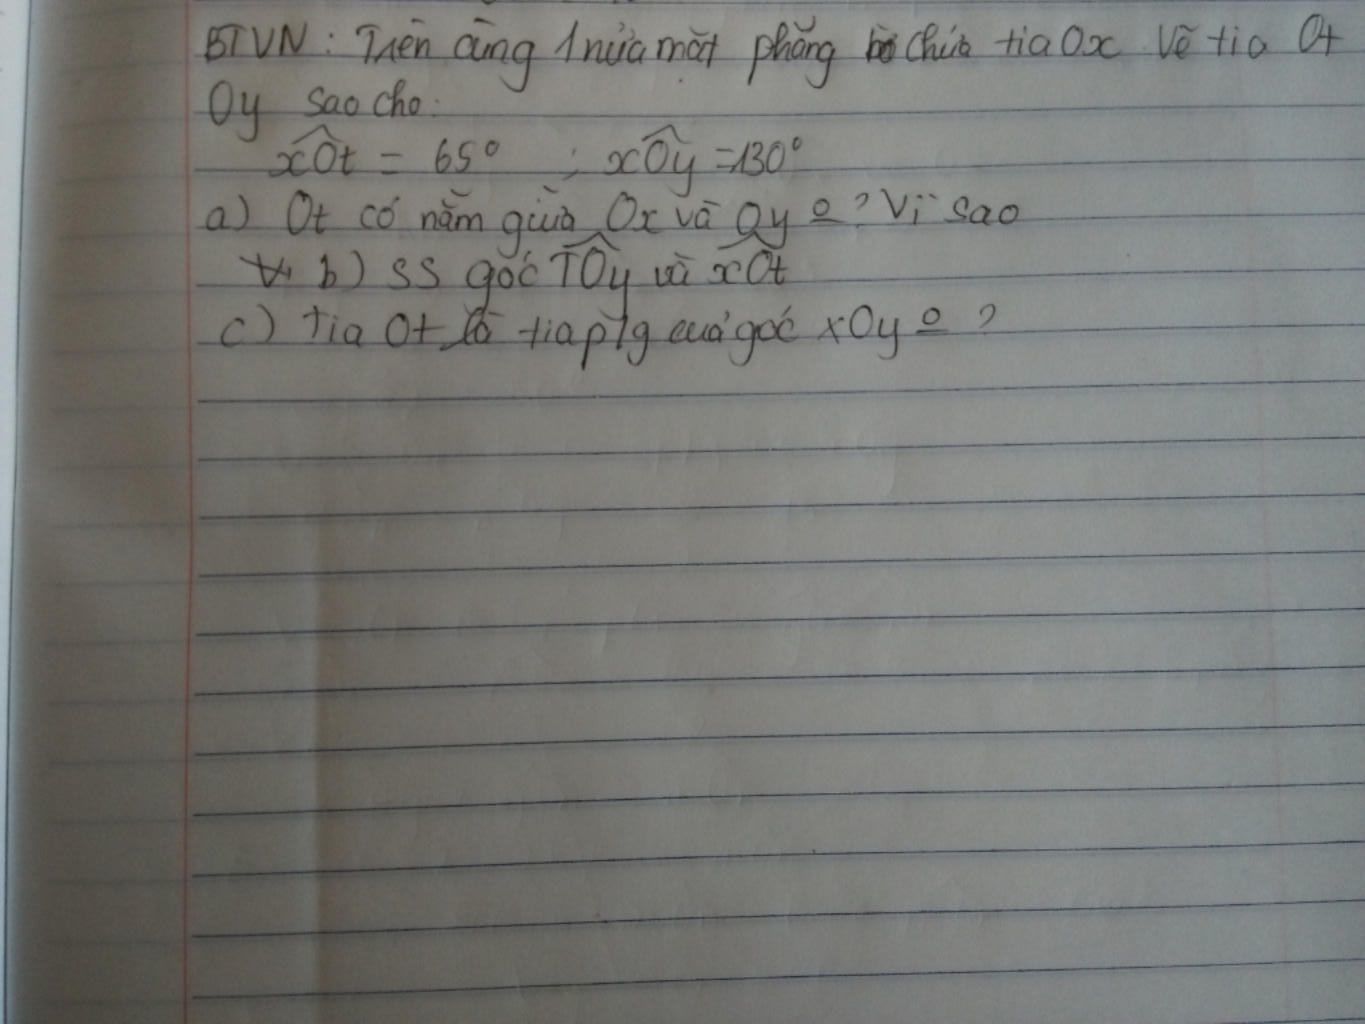 BTVN: Trên cùng 1 nửa mặt phẳng bờ chứa tia Ox. Vẽ tia Ot
Oy sao cho:
xOt = 65° ; xOy = 130°
a) Ot có nằm giữa Ox và Oy o ? Vì sao
b) SS góc TOy và xOt
c) Tia Ot là tia p/g của góc xOy o ?